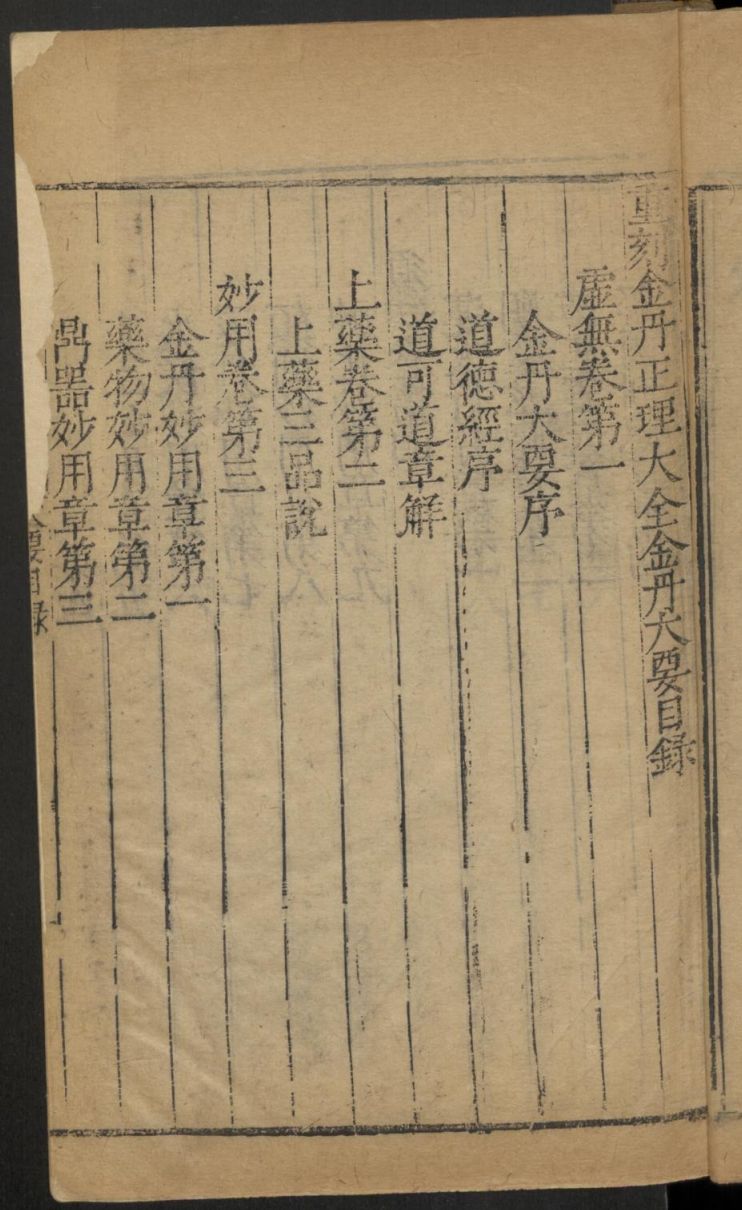 重刻金丹正理大全金丹大要目録
虛無卷第一
金丹大要序
道德經序
道可道章解
上藥卷第二
上藥三品說
妙用卷第三
金丹妙用章第一
藥物妙用章第二
鼎器妙用章第三
大要目録